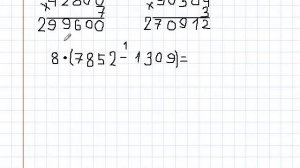 ×42800 ×90304
7 3
299600 270912
1
8·(7852-1309)=